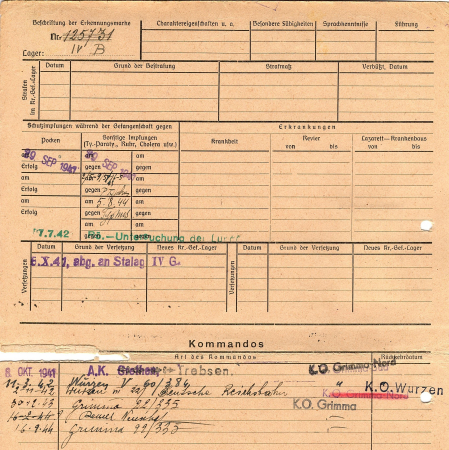 Beschriftung der Erkennungsmarke
Nr. 125731
Lager: IV B
Charaktereigenschaften u. a.
Besondere Fähigkeiten
Sprachkenntnisse
Führung
Strafen im Kr.-Gef.-Lager
Datum
Grund der Bestrafung
Strafmaß
Verbüßt, Datum
Schutzimpfungen während der Gefangenschaft gegen
Erkrankungen
Pocken
Sonstige Impfungen (Ty.-Paraty., Ruhr, Cholera usw.)
Krankheit
Revier
von bis
Lazarett - Krankenhaus
von bis
am 20 SEP 1941
am 20 SEP 1941
am
Erfolg
gegen
gegen
am
am
am
Erfolg
gegen
gegen
am
am 5.8.44
am
Erfolg
gegen
gegen
am
am
am
Erfolg
gegen
gegen
am
am
gegen
gegen
7.7.42 Rö.-Untersuchung der Lunge
Versetzungen
Datum
Grund der Versetzung
Neues Kr.-Gef.-Lager
Versetzungen
Datum
Grund der Versetzung
Neues Kr.-Gef.-Lager
6.X.41, abg. an Stalag IV G.
Kommandos
Datum
Art des Kommandos
Rückkehrdatum
8. OKT. 1941 A.K. Trebsen.
K.O. Grimma Nord
11.3.42 Wurzen V 60/384
" K.O. Wurzen
Wurzen m 22/ Deutsche Reichsbahn
K.O. Grimma Nord
Grimma 22/335
K.O. Grimma
16.9.44 Grimma 22/335